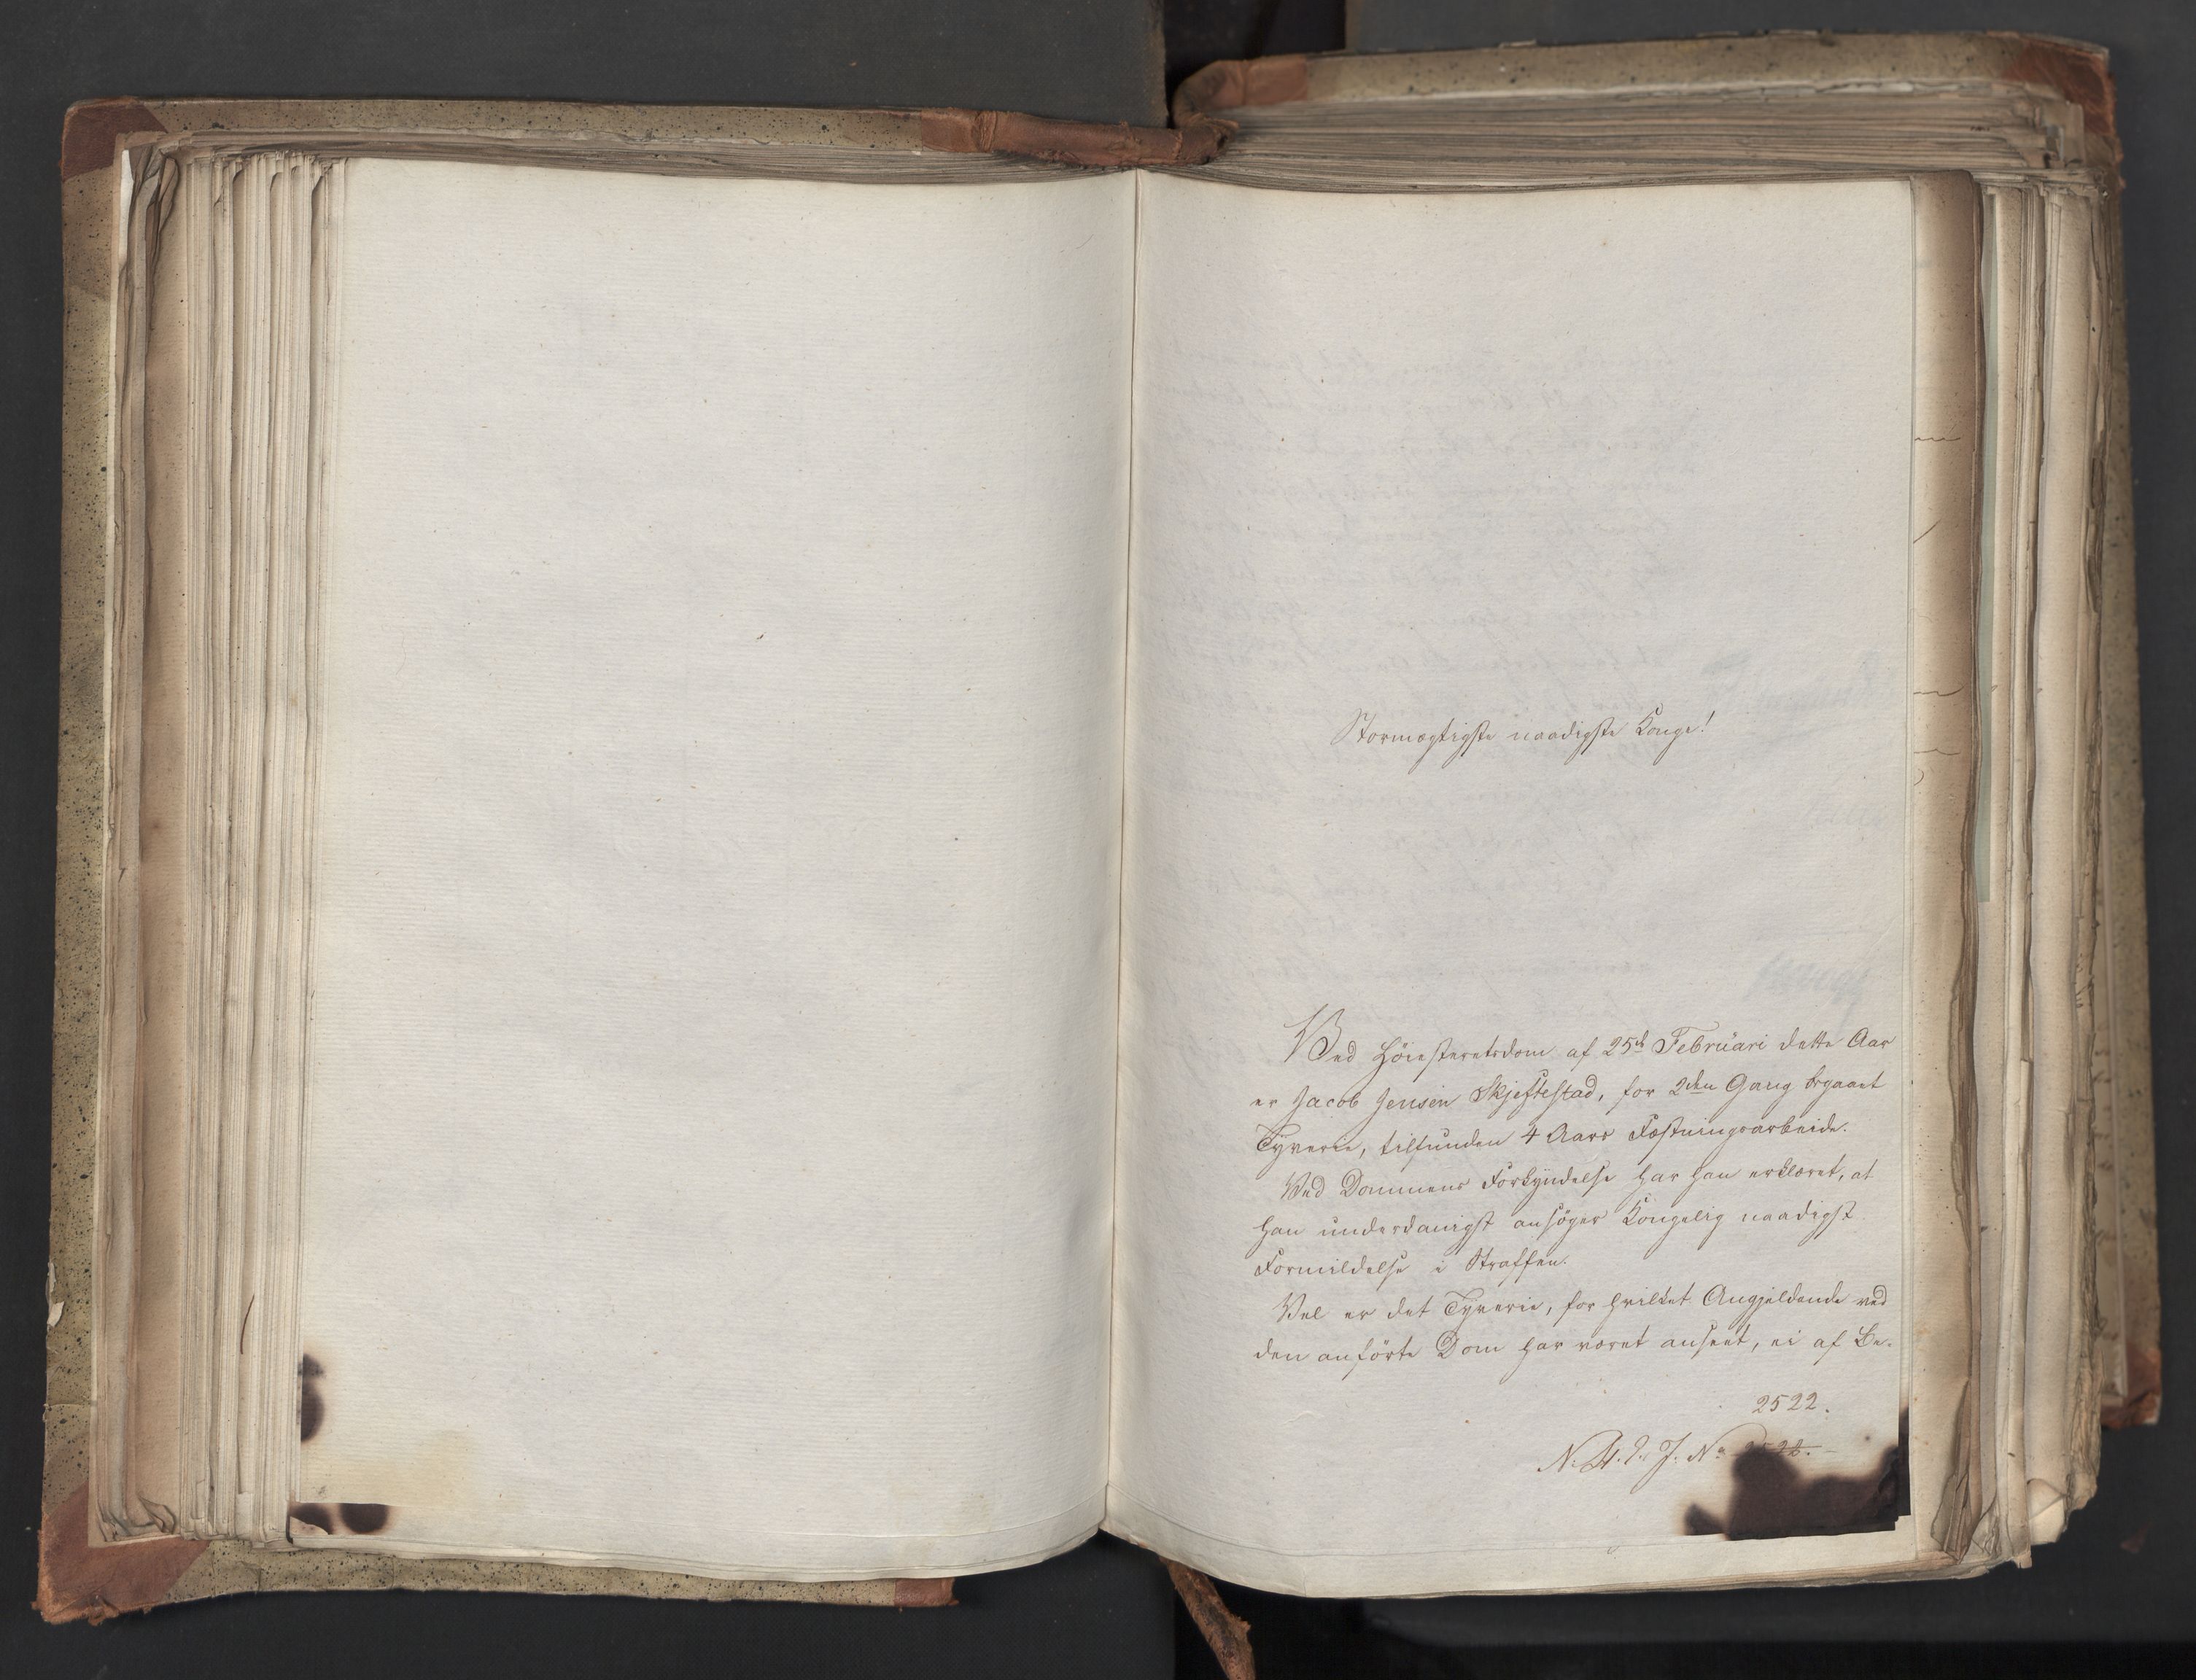 Stormægtigste naadigste Konge!
Ved Höiesteretsdom af 25de Februari dette Aar
er Jacob Jensen Skjeftestad, for 2den Gang begaaet
Tyverie, tilfunden 4 Aars Fæstningsarbeide.
Ved Dommens Forkyndelse har han erklæret, at
han underdanigst ansöger Kongelig naadigst
Formildelse i Straffen.
Vel er det Tyverie, for hvilket Angjeldende ved
den anförte Dom har været anseet, ei af Be-
2522.
N. A. J. No